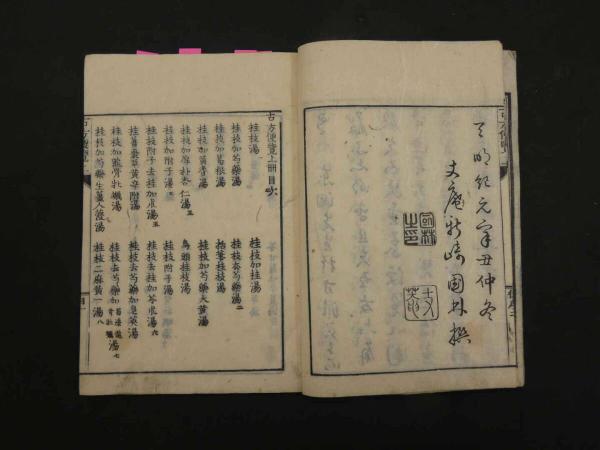 天明紀元辛丑仲冬
國林撰
古方便覽上冊目次
桂枝湯　桂枝加桂湯
桂枝加芍藥湯　桂枝去芍藥湯二
桂枝加葛根湯　括蔞桂枝湯
桂枝加黃耆湯　桂枝加芍藥大黃湯
桂枝加厚朴杏仁湯三　烏頭桂枝湯
桂枝加附子湯　桂枝附子湯
桂枝附子去桂加朮湯五　桂枝去桂加苓朮湯六
桂薑棗草黃辛附湯　桂枝去芍藥加皂莢湯
桂枝加龍骨牡蠣湯　桂枝去芍藥加蜀漆龍骨牡蠣湯七
桂枝加芍藥生薑人參湯　桂枝二麻黃一湯八